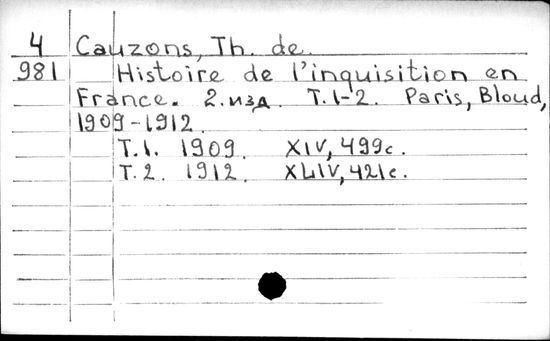 4 Cauzons, Th. de.
981 Histoire de l'inquisition en
France. 2.изд. Т.1-2. Paris, Bloud,
1909-1912.
Т.1. 1909. XIV, 499с.
Т.2. 1912. XLIV, 421с.